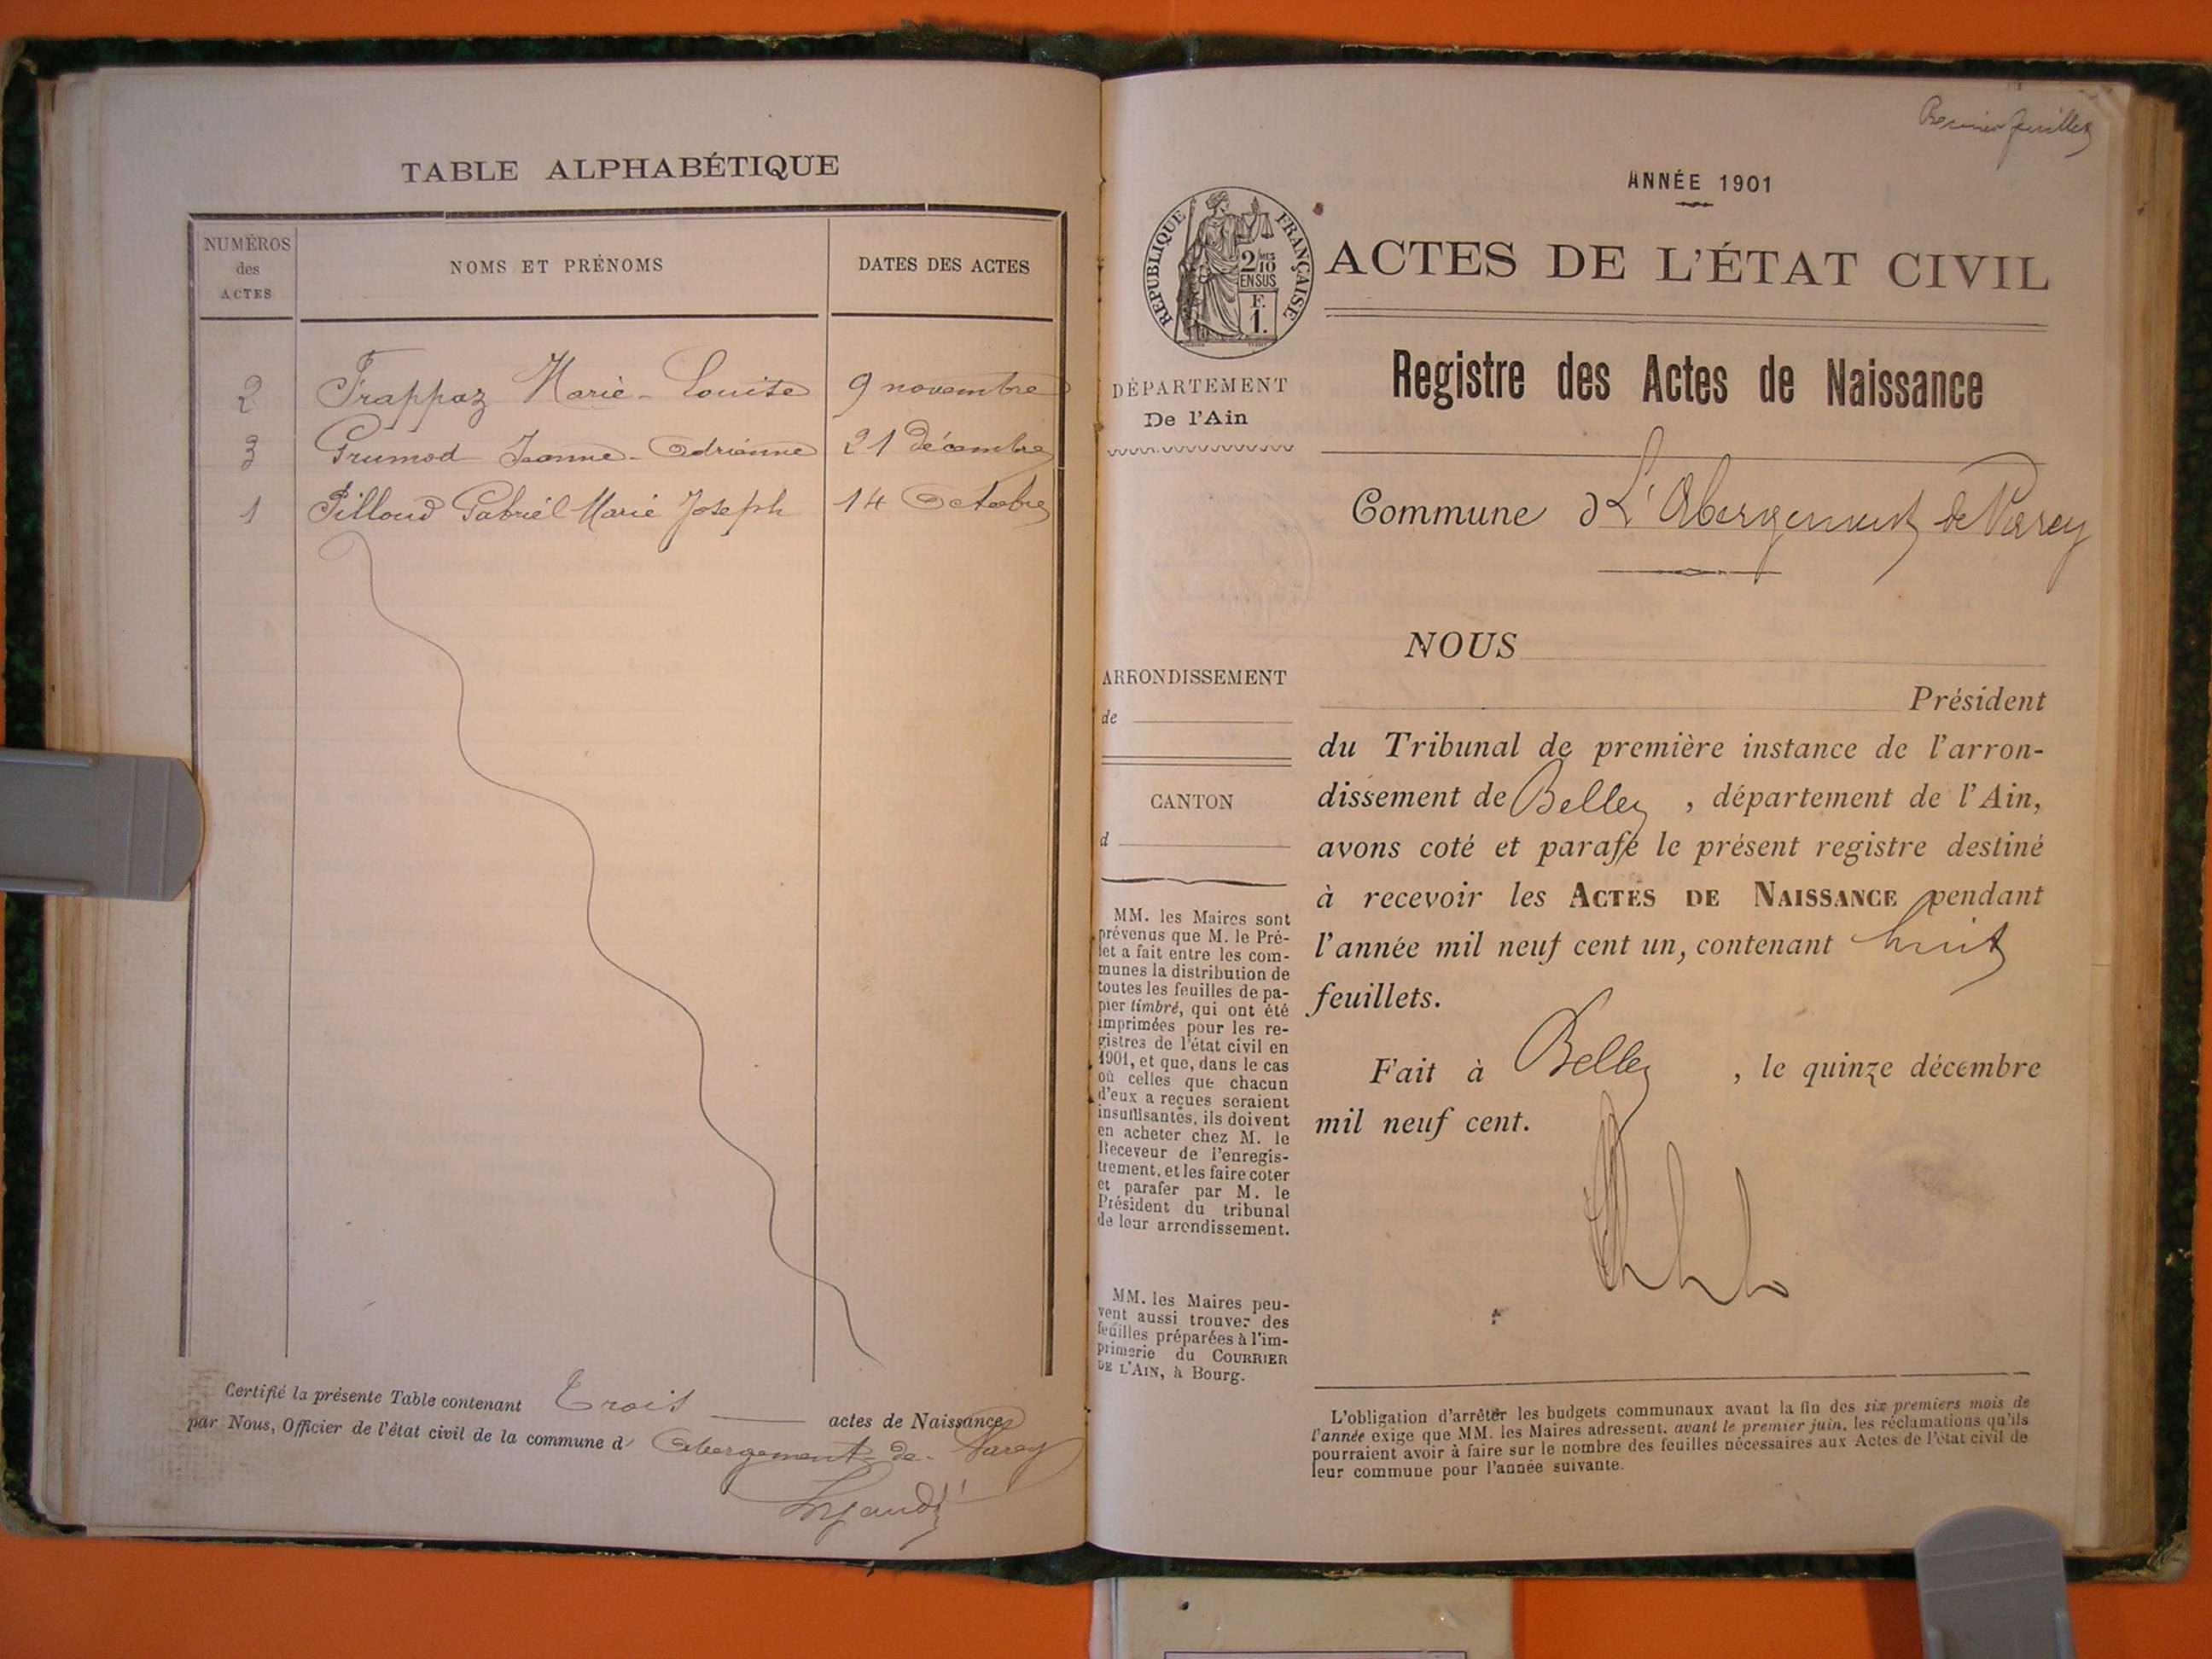 TABLE ALPHABÉTIQUE
NUMÉROS
des
ACTES
NOMS ET PRÉNOMS
DATES DES ACTES
2 Frappaz Marie-Louise 9 novembre
3 Grumod Jeanne-Adrienne 21 Décembre
1 Pilloud Gabriel Marie Joseph 14 Octobre
Certifié la présente Table contenant Trois actes de Naissance
par Nous, Officier de l'état civil de la commune d' Abergement-de-Varey
Premier feuillet
ANNÉE 1901
RÉPUBLIQUE FRANÇAISE
2/10
MES
EN SUS
F.
1.
ACTES DE L'ÉTAT CIVIL
DÉPARTEMENT
De l'Ain
Registre des Actes de Naissance
Commune d L'Abergement de Varey
ARRONDISSEMENT
de
CANTON
d
MM. les Maires sont
prévenus que M. le Pré-
fet a fait entre les com-
munes la distribution de
toutes les feuilles de pa-
pier timbré, qui ont été
imprimées pour les re-
gistres de l'état civil en
1901, et que, dans le cas
où celles que chacun
d'eux a reçues seraient
insuffisantes, ils doivent
en acheter chez M. le
Receveur de l'enregis-
trement, et les faire coter
et parafer par M. le
Président du tribunal
de leur arrondissement.
MM. les Maires peu-
vent aussi trouver des
feuilles préparées à l'im-
primerie du COURRIER
DE L'AIN, à Bourg.
NOUS
Président
du Tribunal de première instance de l'arron-
dissement de Belley , département de l'Ain,
avons coté et parafé le présent registre destiné
à recevoir les ACTES DE NAISSANCE pendant
l'année mil neuf cent un, contenant huit
feuillets.
Fait à Belley , le quinze décembre
mil neuf cent.
L'obligation d'arrêter les budgets communaux avant la fin des six premiers mois de
l'année exige que MM. les Maires adressent, avant le premier juin, les réclamations qu'ils
pourraient avoir à faire sur le nombre des feuilles nécessaires aux Actes de l'état civil de
leur commune pour l'année suivante.